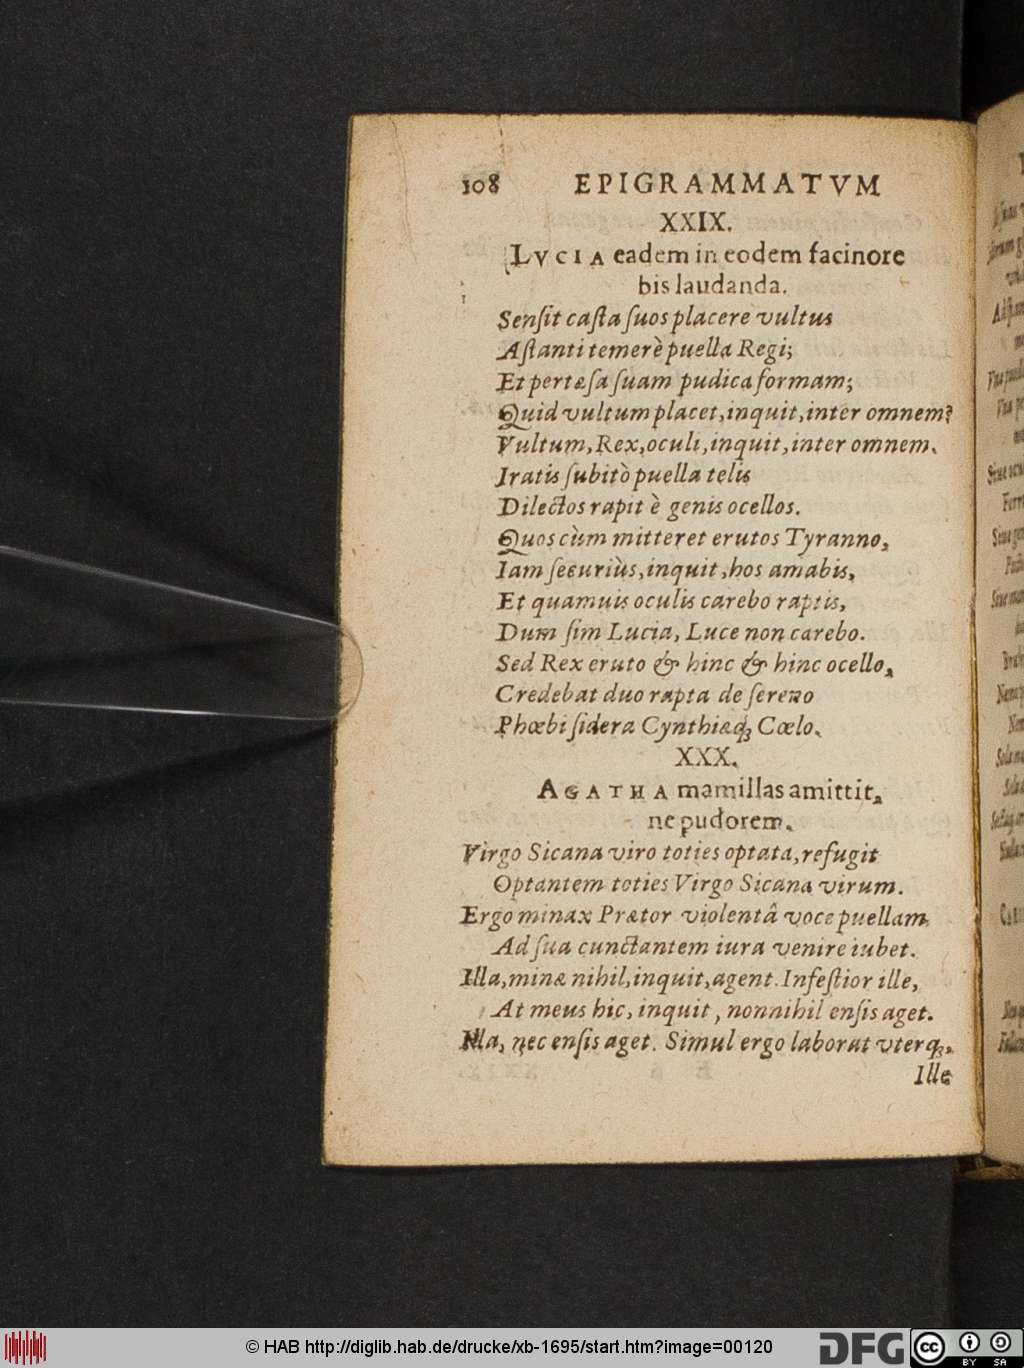 108 EPIGRAMMATVM
XXIX.
LVCIA eadem in eodem facinore
bis laudanda.
Senſit caſta ſuos placere vultus
Aſtanti temerè puella Regi;
Et pertæſa ſuam pudica formam;
Quid vultum placet, inquit, inter omnem?
Vultum, Rex, oculi, inquit, inter omnem.
Iratis ſubitò puella telis
Dilectos rapit è genis ocellos.
Quos cùm mitteret erutos Tyranno,
Iam ſecuriùs, inquit, hos amabis,
Et quamuis oculis carebo raptis,
Dum ſim Lucia, Luce non carebo.
Sed Rex eruto & hinc & hinc ocello,
Credebat duo rapta de ſereno
Phœbi ſidera Cynthiæq; Cœlo.
XXX.
AGATHA mamillas amittit,
ne pudorem.
Virgo Sicana viro toties optata, refugit
Optantem toties Virgo Sicana virum.
Ergo minax Prætor violentâ voce puellam
Ad ſua cunctantem iura venire iubet.
Illa, minæ nihil, inquit, agent. Infeſtior ille,
At meus hic, inquit, nonnihil enſis aget.
Illa, nec enſis aget. Simul ergo laborat vterq;,
Ille
© HAB http://diglib.hab.de/drucke/xb-1695/start.htm?image=00120
DFG
cc BY SA